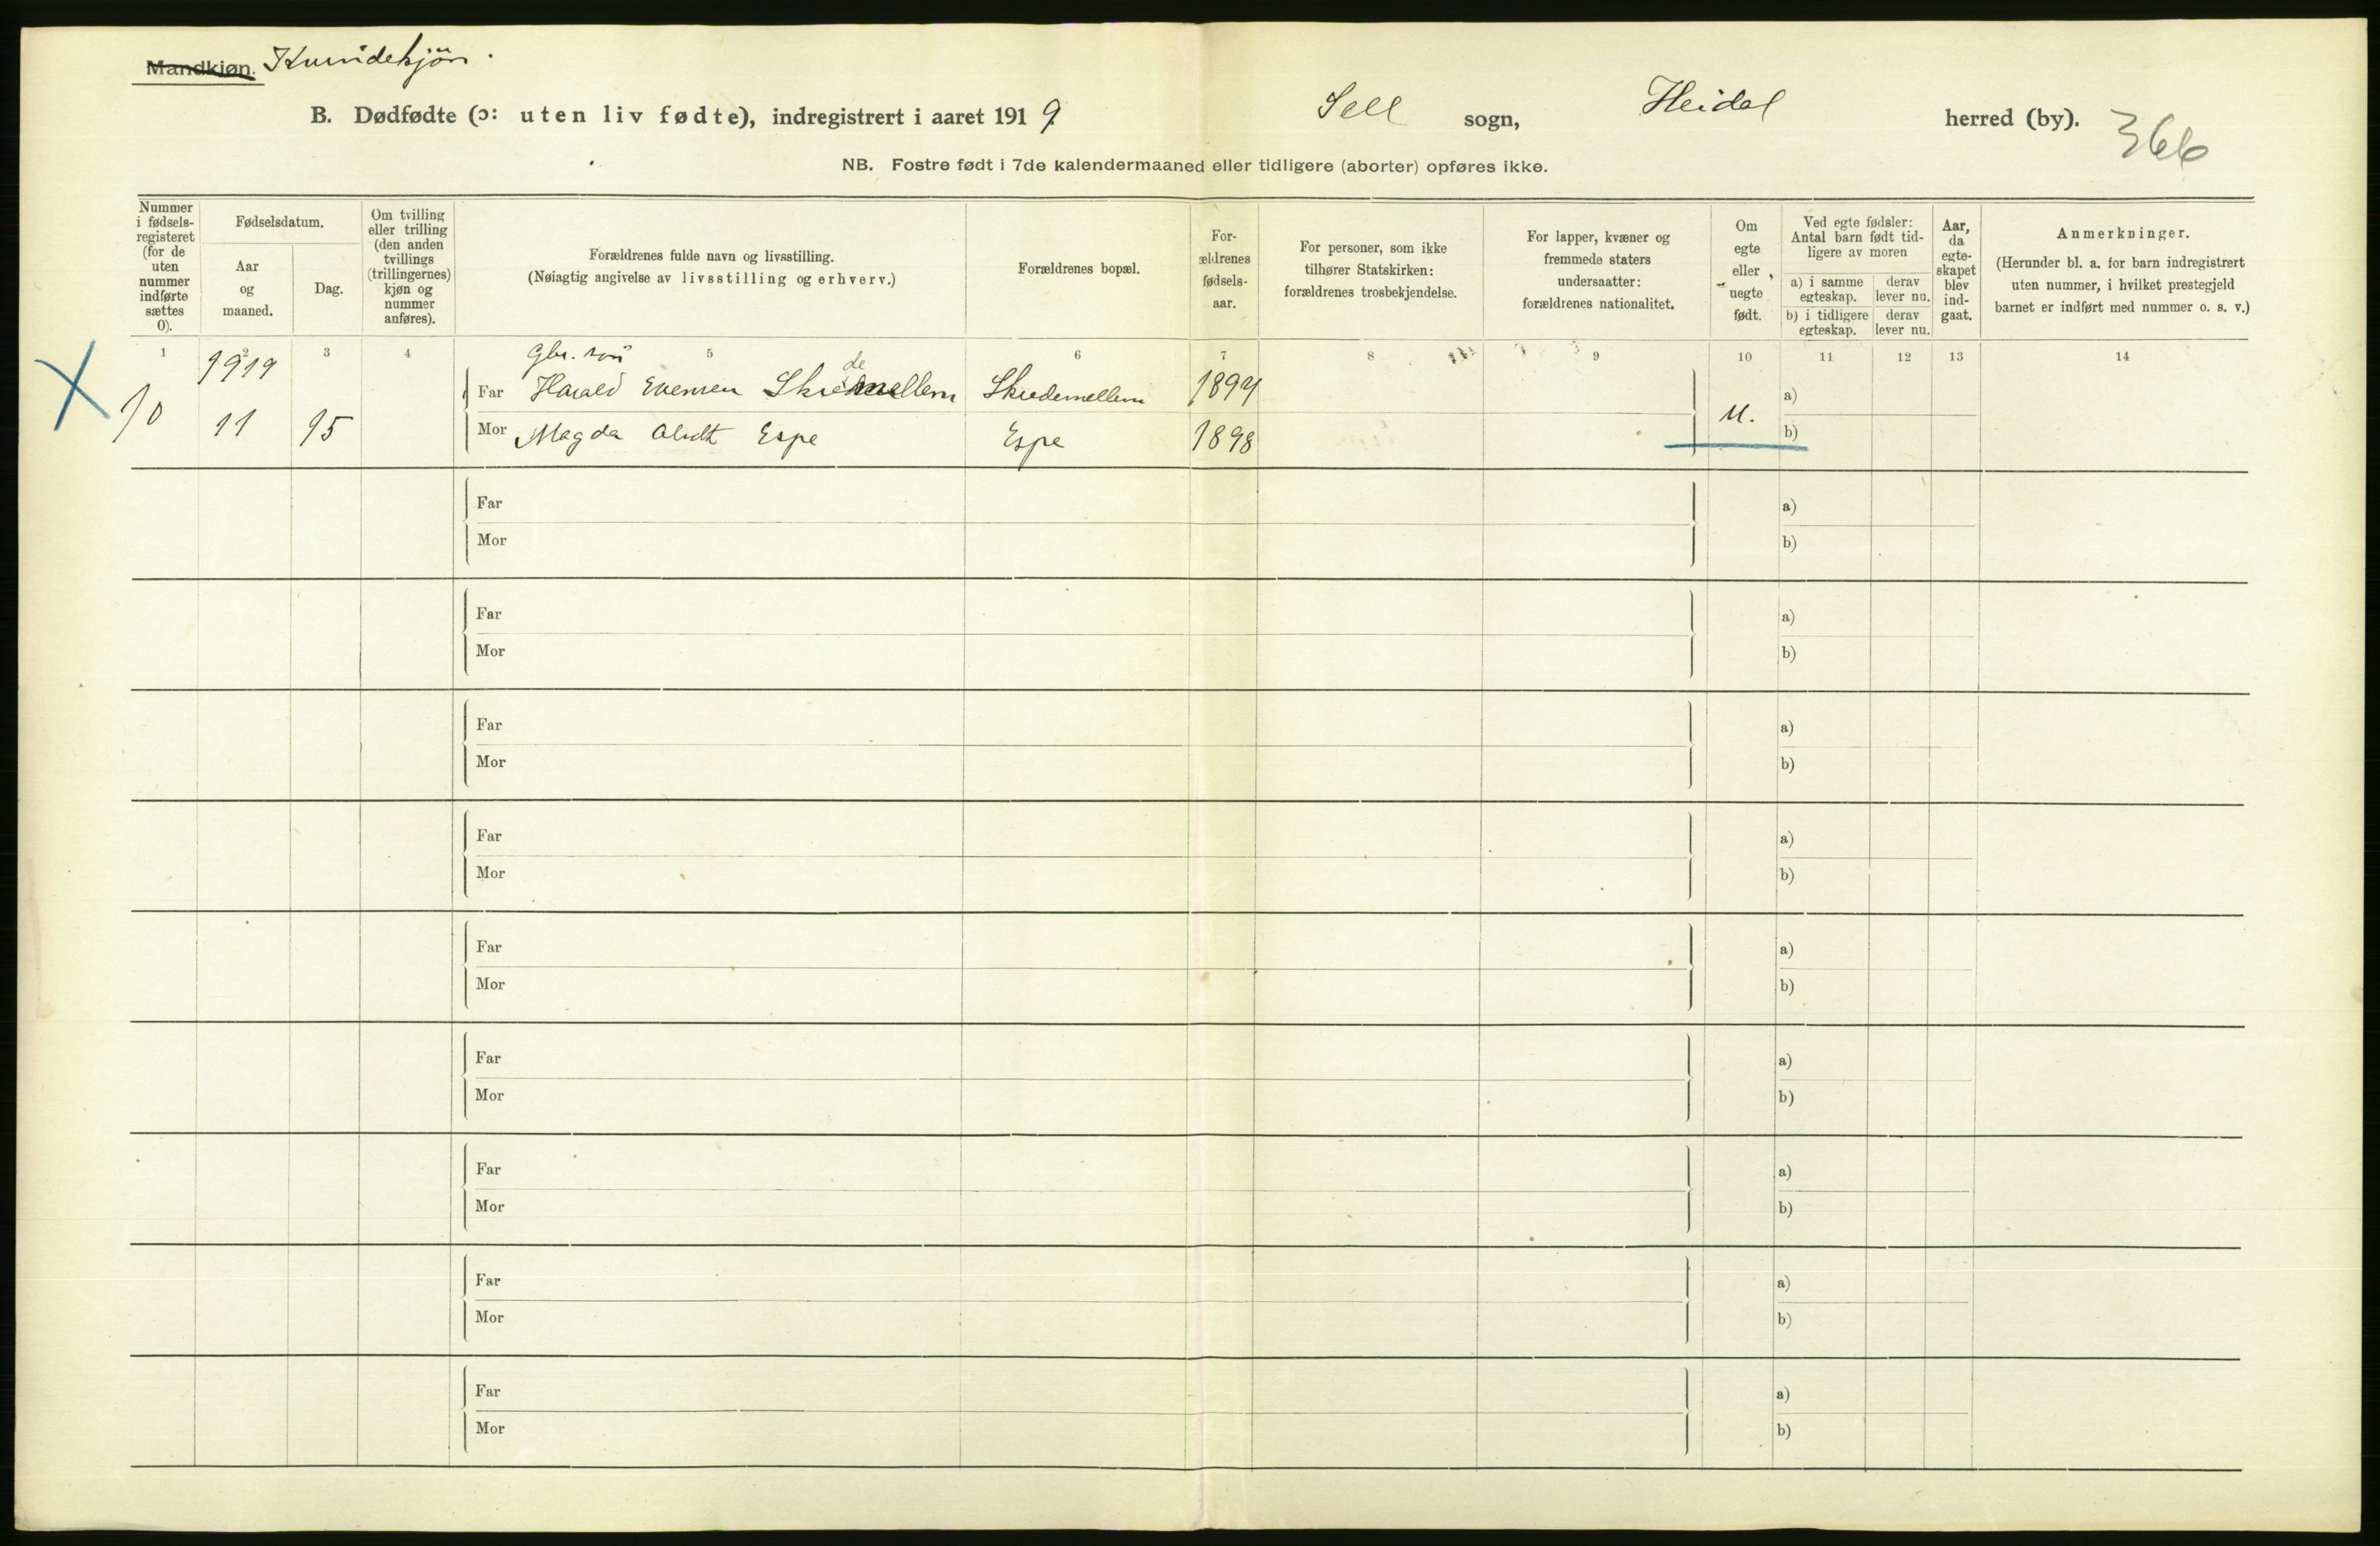 Mandkjøn. Kvindekjön.
B. Dødfødte (ɔ: uten liv fødte), indregistrert i aaret 1919. Sell sogn, Heidal herred (by).
366
NB. Fostre født i 7de kalendermaaned eller tidligere (aborter) opføres ikke.
Nummer i fødsels-registeret (for de uten nummer indførte sættes 0).
Fødselsdatum.
Aar og maaned.
Dag.
Om tvilling eller trilling (den anden tvillings (trillingernes) kjøn og nummer anføres).
Forældrenes fulde navn og livsstilling.
(Nøiagtig angivelse av livsstilling og erhverv.)
Forældrenes bopæl.
For-ældrenes fødsels-aar.
For personer, som ikke tilhører Statskirken: forældrenes trosbekjendelse.
For lapper, kvæner og fremmede staters undersaatter: forældrenes nationalitet.
Om egte eller uegte født.
Ved egte fødsler: Antal barn født tid-ligere av moren
a) i samme egteskap.
derav lever nu.
b) i tidligere egteskap.
derav lever nu.
Aar, da egte-skapet blev ind-gaat.
Anmerkninger.
(Herunder bl. a. for barn indregistrert uten nummer, i hvilket prestegjeld barnet er indført med nummer o. s. v.)
1 2 3 4 5 6 7 8 9 10 11 12 13 14
1919 Gbr. sön
Far Harald Evensen Skiedemellem Skiedemellem 1894 a)
10 11 15 u.
Mor Magda Espe Espe 1898 b)
Far a)
Mor b)
Far a)
Mor b)
Far a)
Mor b)
Far a)
Mor b)
Far a)
Mor b)
Far a)
Mor b)
Far a)
Mor b)
Far a)
Mor b)
Far a)
Mor b)